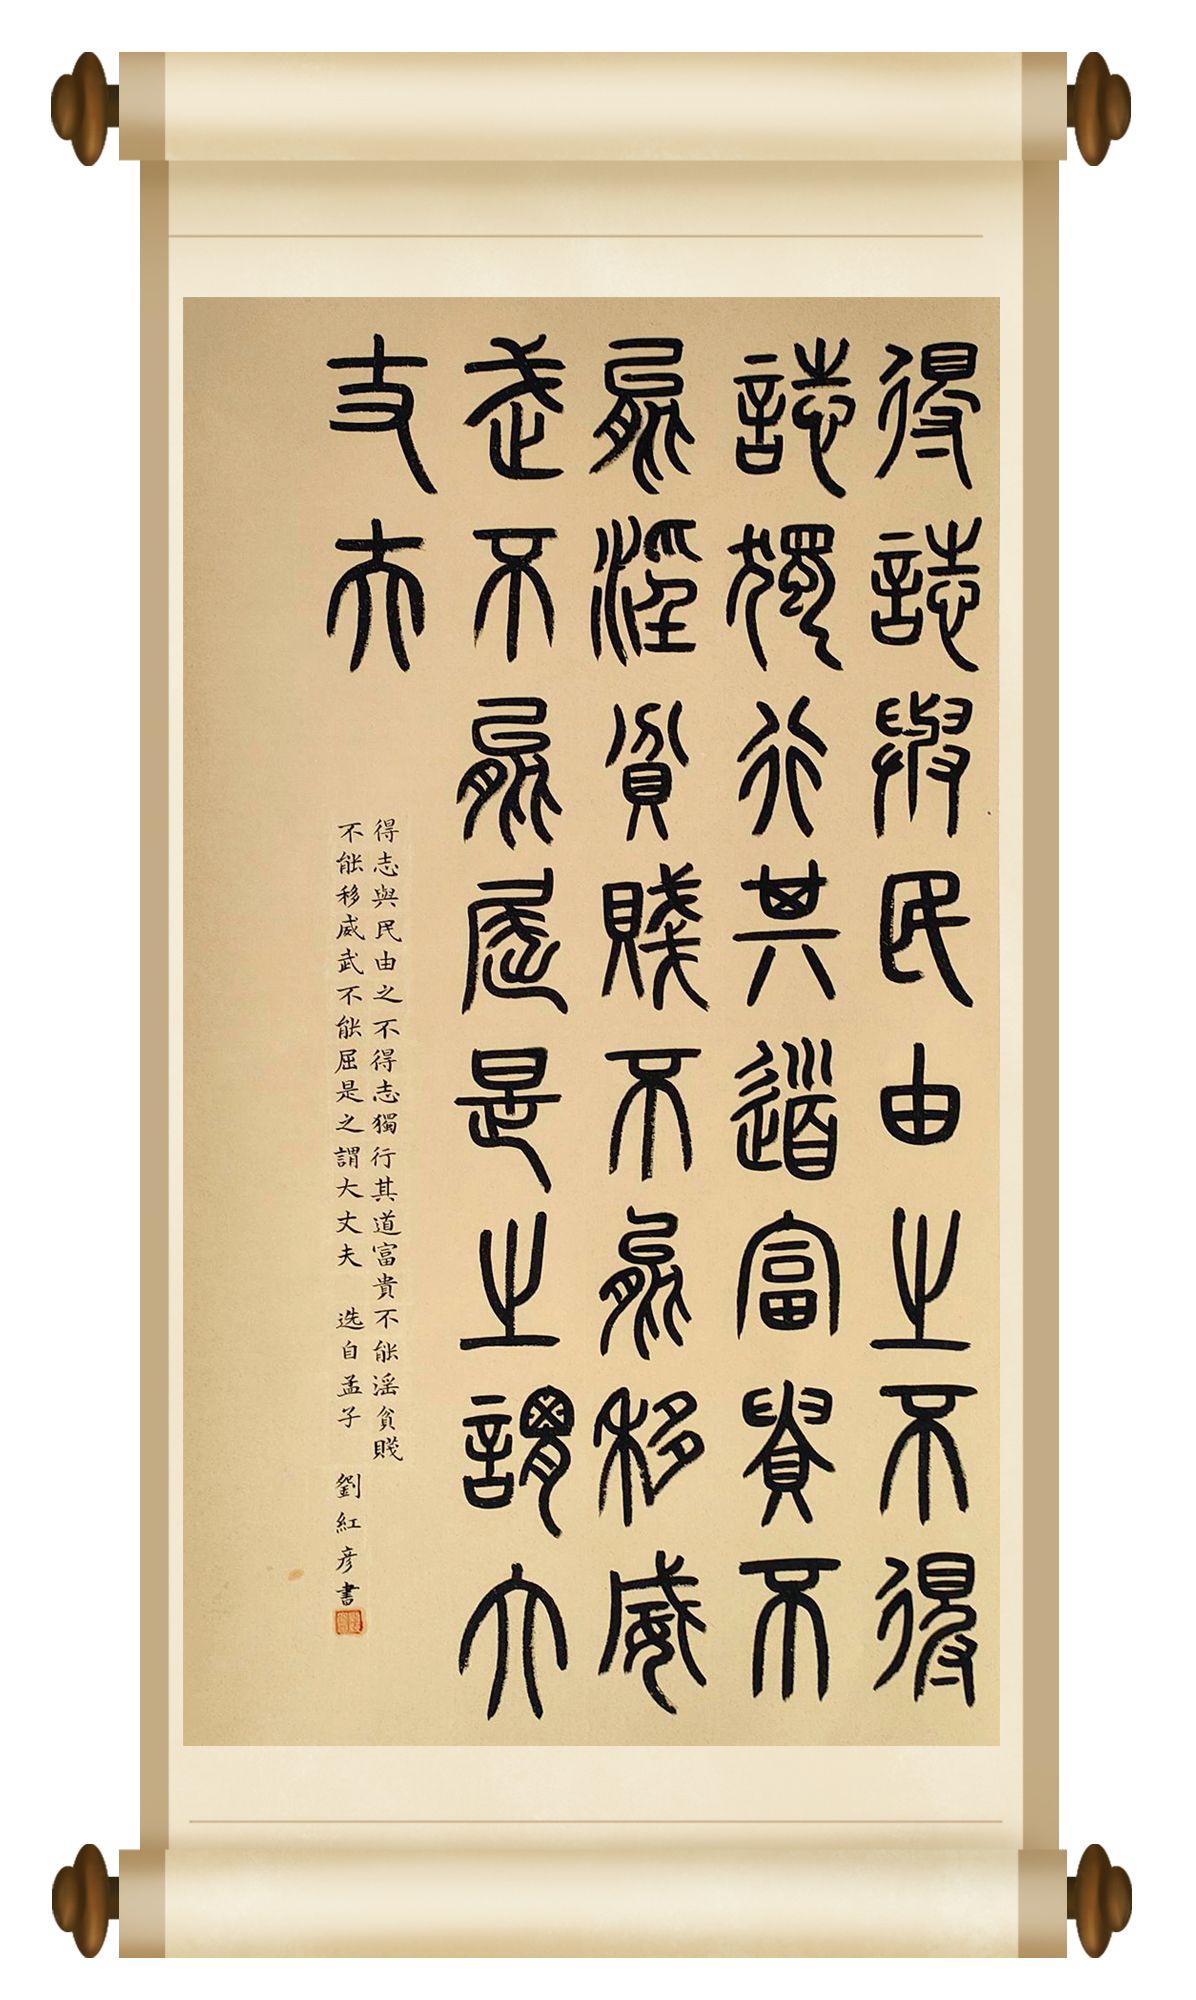 得誌與民由之不得
誌獨行其道富貴不
能淫貧賤不能移威
武不能屈是之謂大
丈夫
得志與民由之不得志獨行其道富貴不能淫貧賤
不能移威武不能屈是之謂大丈夫 选自孟子 劉紅彦書